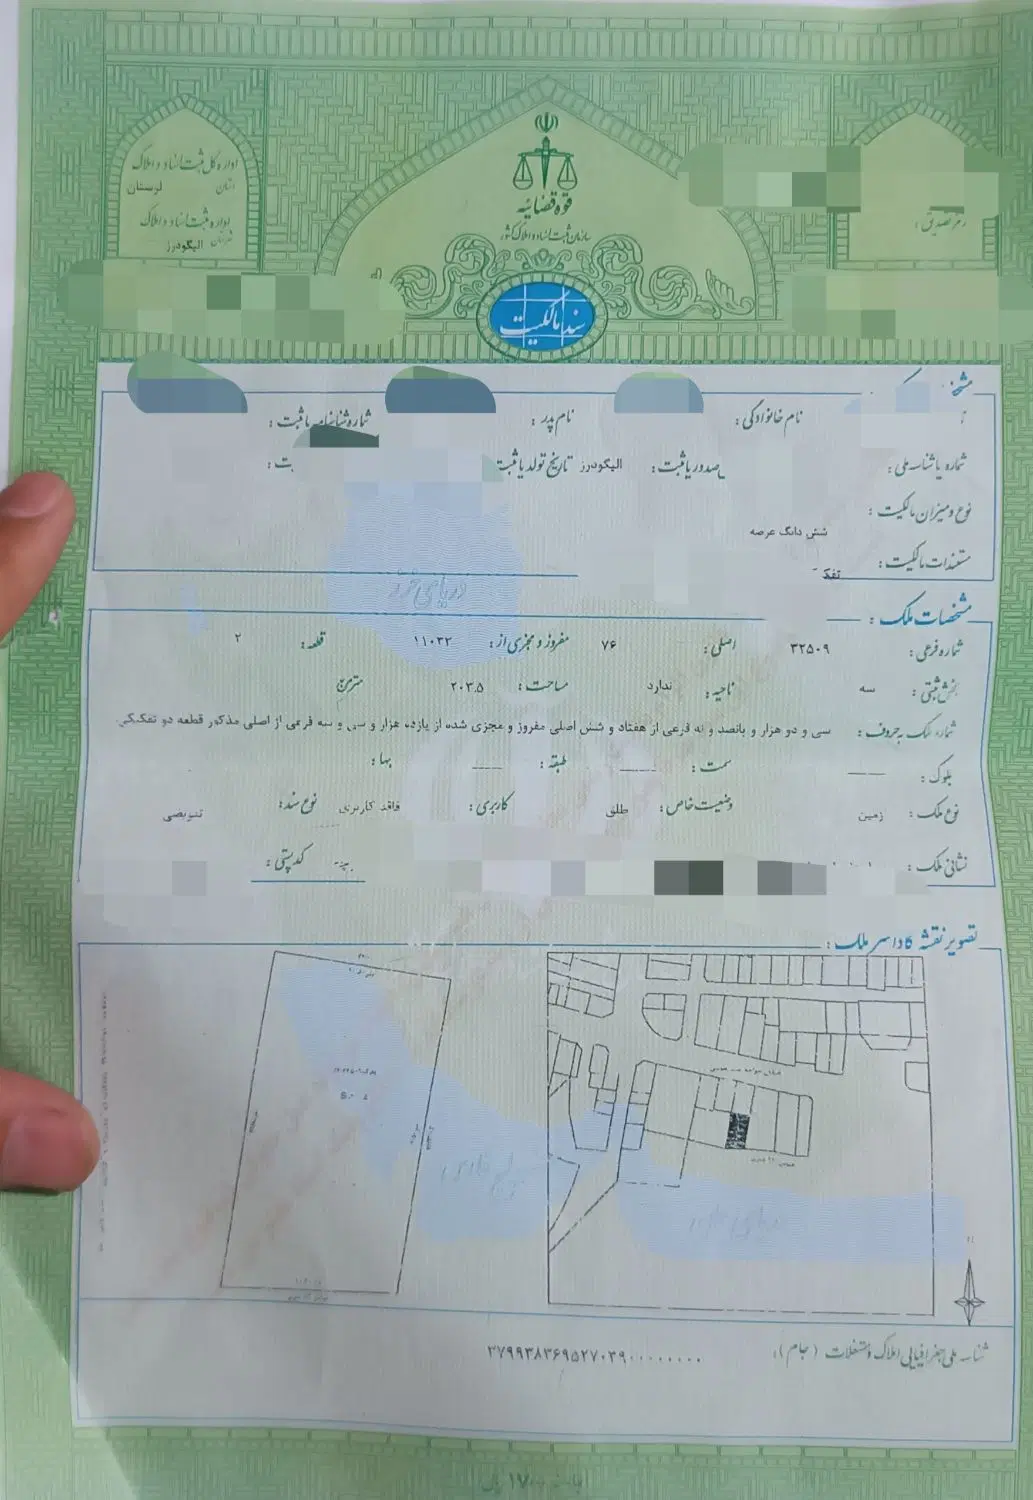 اداره کل ثبت اسناد و املاک
استان لرستان
اداره ثبت اسناد و املاک
شهرستان الیگودرز
قوه قضائیه
سازمان ثبت اسناد و املاک کشور
رمز تصدیق :
سند مالکیت
نام خانوادگی : نام پدر : شماره شناسنامه یا ثبت :
شماره یا شناسه ملی : صدور یا ثبت : الیگودرز تاریخ تولد یا ثبت
نوع و میزان مالکیت :
شش دانگ عرصه
مستندات مالکیت :
دریای خزر
مشخصات ملک :
شماره فرعی : ۳۲۵۰۹ اصلی : ۷۶ مفروز و مجزی از : ۱۱۰۳۳ قطعه : ۲
بخش ثبتی : سه ناحیه : ندارد مساحت : ۲۰۳.۵ مترمربع
شماره ملک به حروف : سی و دو هزار و پانصد و نه فرعی از هفتاد و شش اصلی مفروز و مجزی شده از یازده هزار و سی و سه فرعی از اصلی مذکور قطعه دو تفکیکی
بلوک : —— سمت : —— طبقه : —— بها :
نوع ملک : زمین وضعیت خاص : طلق کاربری : فاقد کاربری نوع سند : تعویضی
نشانی ملک : کد پستی :
تصویر نقشه کاداستر ملک :
خلیج فارس
دریای
شناسه ملی جغرافیایی املاک و مستغلات (جام) : ۳۷۹۹۳۸۳۶۹۵۲۷۰۳۹۰۰۰۰۰۰۰۰